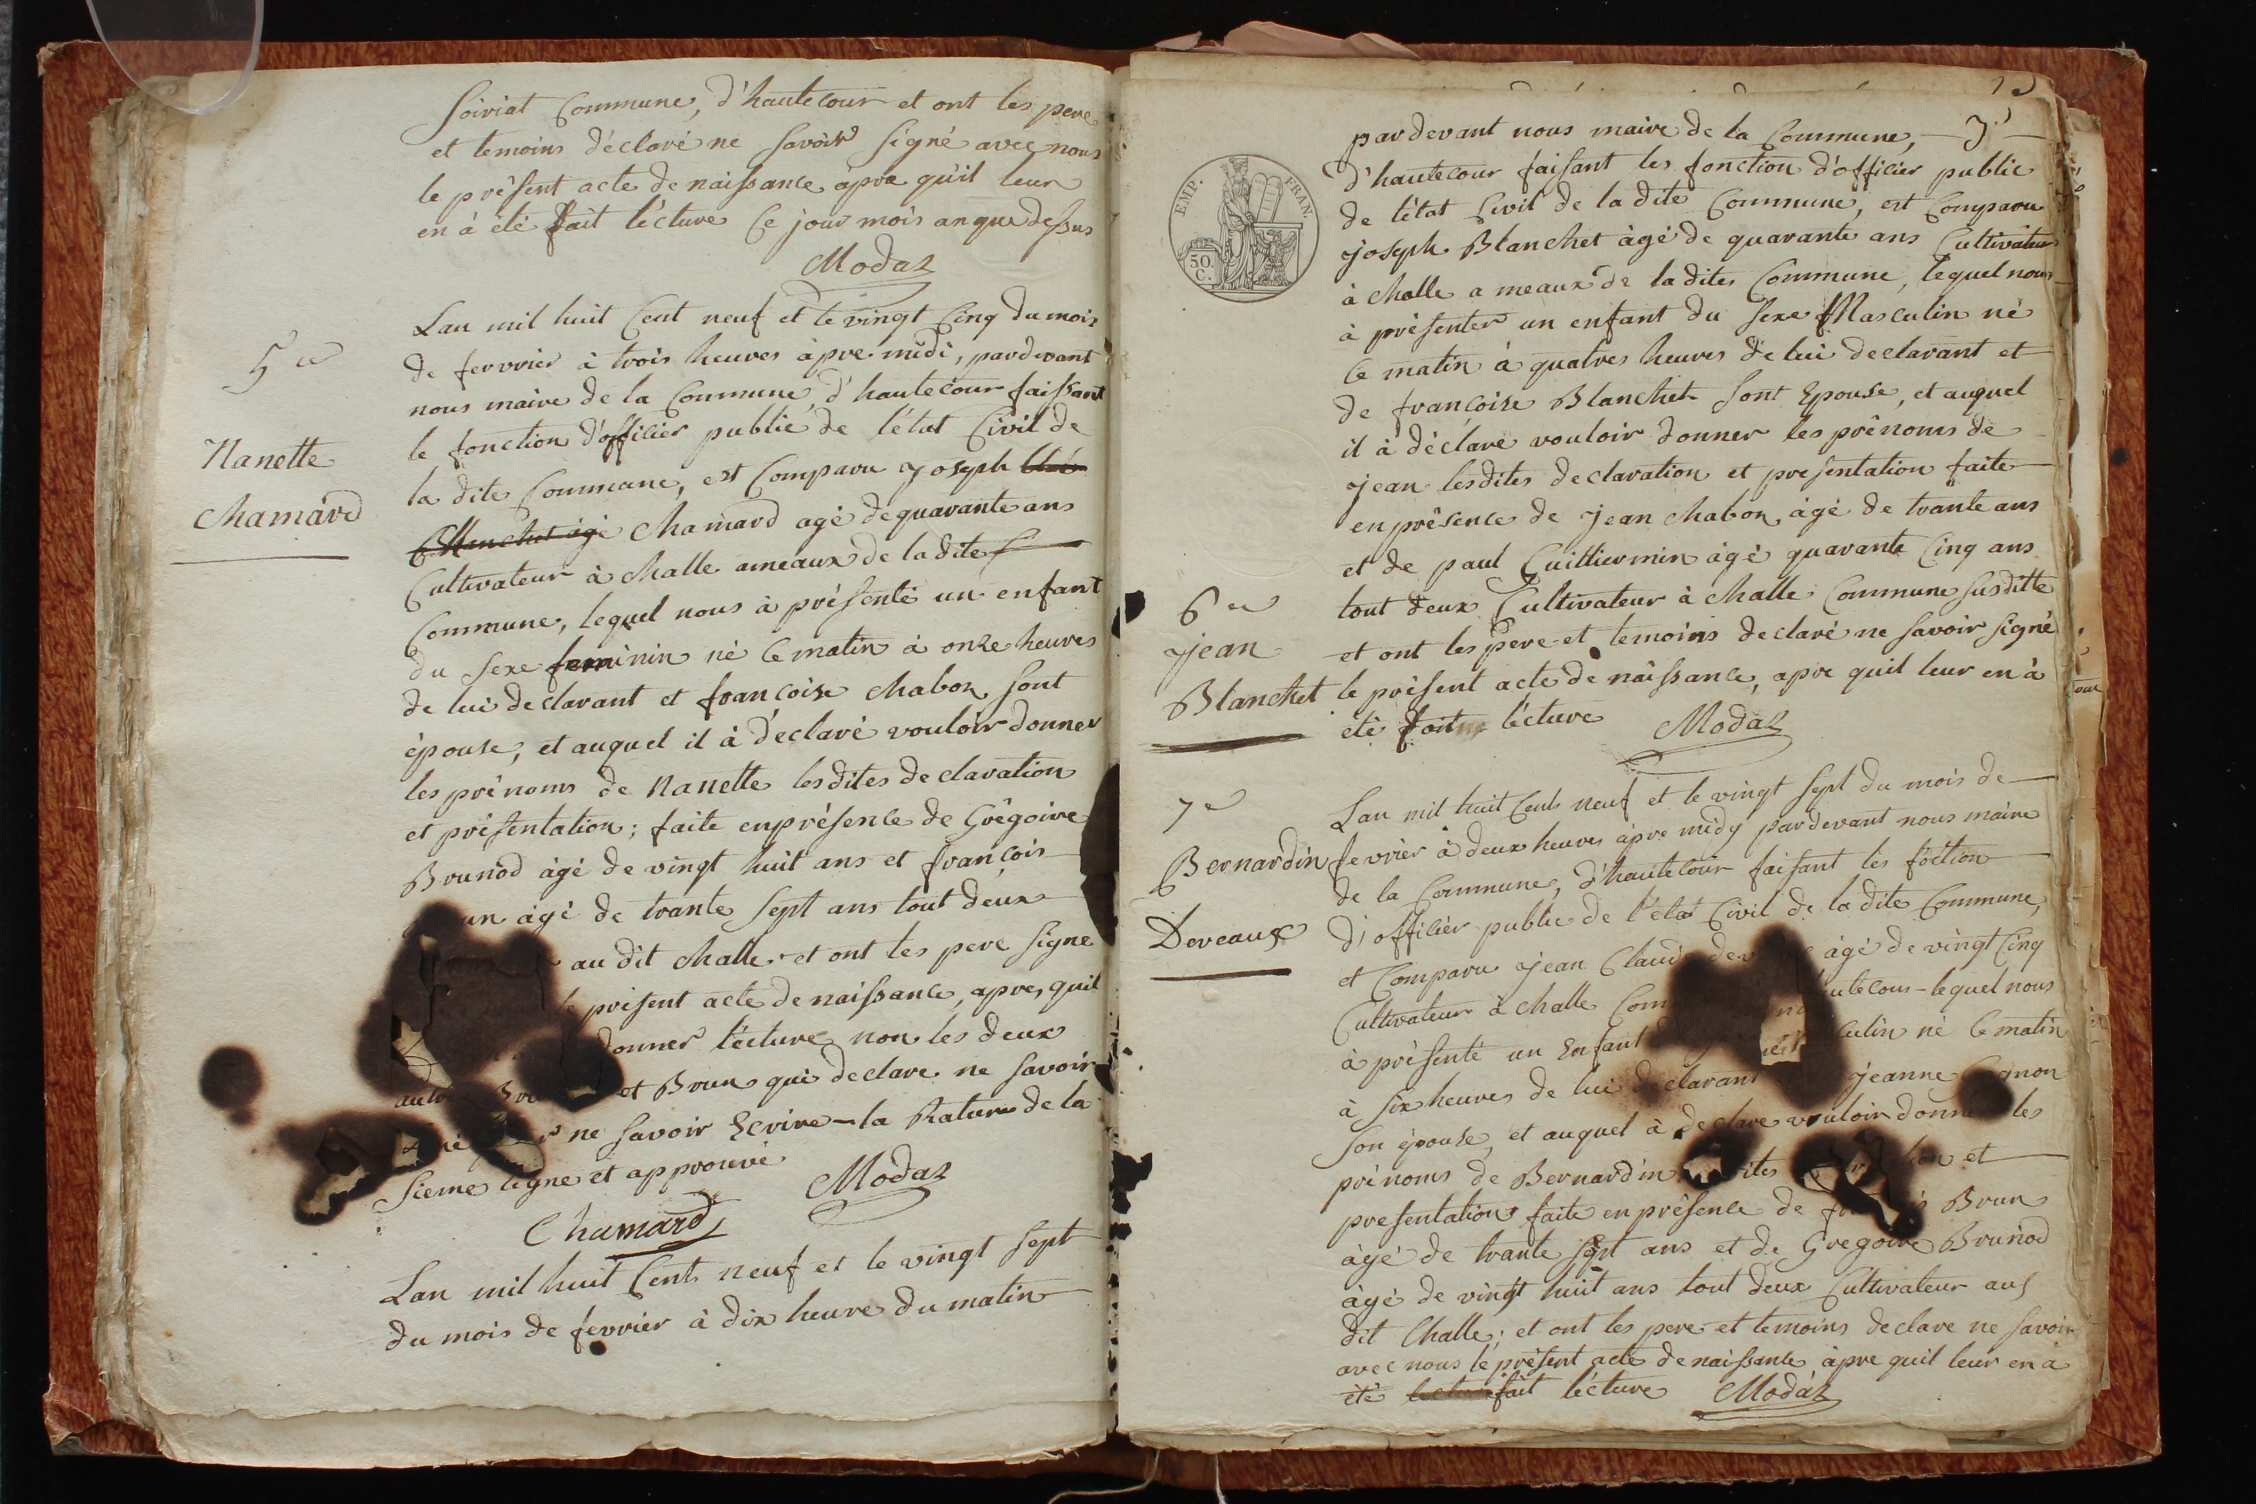 Soiriat Commune, d'hautecour et ont les pere
et temoins déclaré ne savoir signé avec nous
le présent acte de naissance apre qu'il leur
en à été fait lécture ce jour mois an que dessus
Modaz
5e
Nanette
Chamard
Lan mil huit Cent neuf et le vingt Cinq du mois
de fevvrier à trois heures àpre midi, pardevant
nous maire de la Commune, d'hautecour faissant
le fonction d'officier public de l'état Civil de
la dite Commune, est Comparu Joseph
Blanchet agé Chamard agé de quarante ans
Cultivateur à Challe ameaux de la dite
Commune, lequel nous à présenté un enfant
du sexe feminin né ce matin à onze heures
de lui declarant et françoise Chabon sont
épouse, et auquel il à déclaré vouloir donner
les prénoms de Nanette lesdites declaration
et présentation; faite enprésence de Grégoire
Brunod àgé de vingt huit ans et françois
àgé de trante sept ans tout deux
au dit Challe et ont les pere signe
présent acte de naissance, apres quil
donner lécture non les deux
et Brun qui declare ne savoir
ne savoir Ecrire la Rature de la
sieme ligne et approuvé
Modaz
Chamard
Lan mil huit Cent neuf et le vingt sept
du mois de fevrier à dix heure du matin
EMP. FRAN.
50.
C.
pardevant nous maire de la Commune,
d'hautecour faisant les fonction d'officier public
de létat Civil de la dite Commune, est Comparu
joseph Blanchet àgé de quarante ans Cultivateur
à Challe a meaux de la dites Commune, lequel nous
à présenter un enfant du sexe Masculin né
ce matin à quatres heures de lui declarant et
de francoise Blanchet sont Epouse, et auquel
il à déclaré vouloir donner les prénoms de
jean lesdites declaration et presentation faite
en présence de jean Chabon àgé de trante ans
et de paul Cuilliermin àgé quarante Cinq ans
6e
jean
Blanchet
tout deux Cultivateur à Challe Commune susditte
et ont les pere et temoins declaré ne savoir signé
le présent acte de naissance, apre quil leur en à
été fait lécture Modaz
7e
Bernardin
Deveaux
Lan mil huit Cent neuf et le vingt sept du mois de
fevrier à deux heures àpre midy pardevant nous maire
de la Commune, d'hautecour faisant les foction
d'officier public de l'etat Civil de la dite Commune,
et Comparu jean Claude àgé de vingt Cinq
Cultivateur à Challe lequel nous
à présenté un Enfant né ce matin
à six heures de lui declarant jeanne
son épouse, et auquel à declare vouloir donner les
prénoms de Bernardin et
presentation faite enprésence de Brun
àgé de trante sept ans et de Gregoire Brunod
àgé de vingt huit ans tout deux Cultivateur au
dit Challe; et ont les pere et temoins declare ne savoir
avec nous le présent acte de naissance àpre quil leur en à
été fait lécture Modaz